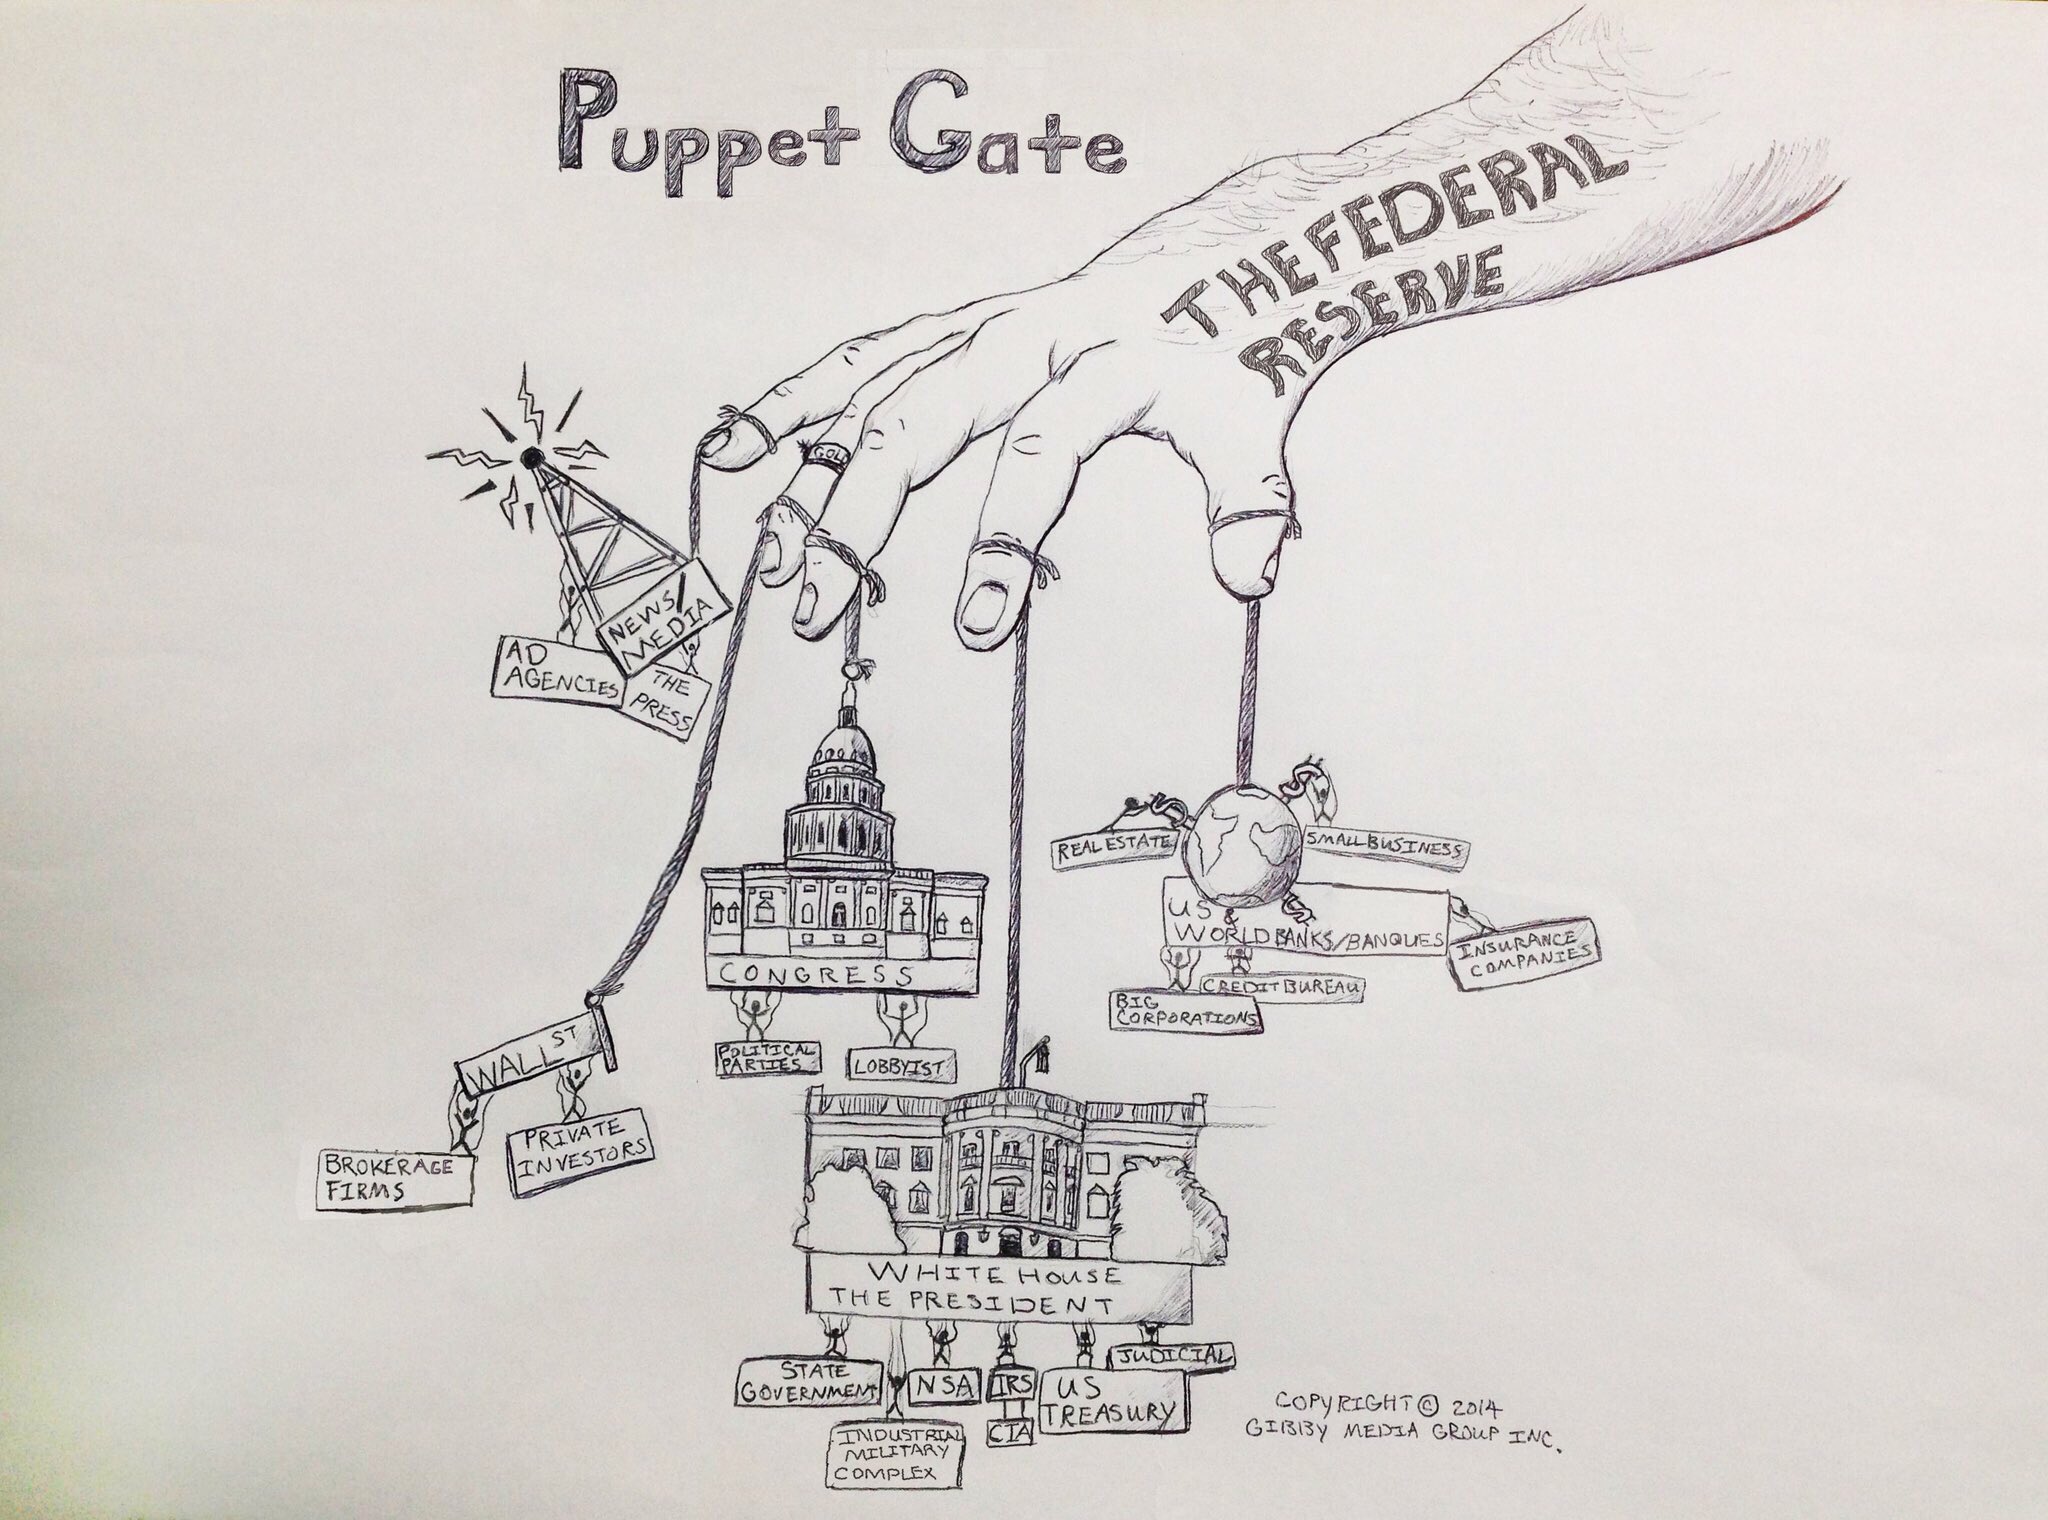 Puppet Gate
THE FEDERAL
RESERVE
GOLD
NEWS/
MEDIA
AD
AGENCIES
THE
PRESS
CONGRESS
POLITICAL
PARTIES
LOBBYIST
WALL ST
BROKERAGE
FIRMS
PRIVATE
INVESTORS
REAL ESTATE
SMALL BUSINESS
US &
WORLD BANKS/BANQUES
INSURANCE
COMPANIES
BIG
CORPORATIONS
CREDIT BUREAU
WHITE HOUSE
THE PRESIDENT
STATE
GOVERNMENT
INDUSTRIAL
MILITARY
COMPLEX
NSA
IRS
CIA
US
TREASURY
JUDICIAL
COPYRIGHT © 2014
GIBBY MEDIA GROUP INC.